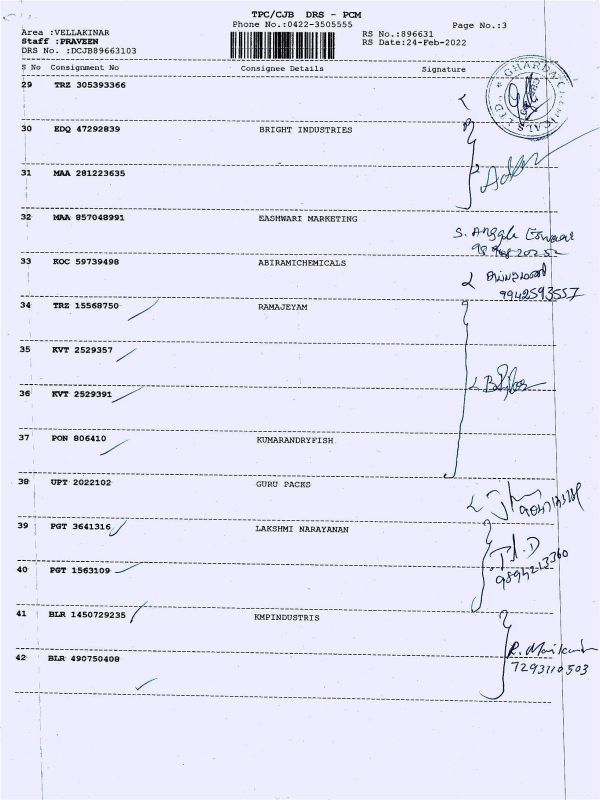 TPC/CJB DRS - PCM
Phone No.:0422-3505555
Page No.:3
Area :VELLAKINAR
RS No.:896631
Staff :PRAVEEN
RS Date:24-Feb-2022
DRS No. :DCJB89663103
S No Consignment No Consignee Details Signature
29 TRZ 305393366
GHARDA CHEMICALS LTD
30 EDQ 47292839 BRIGHT INDUSTRIES
31 MAA 281223635
32 MAA 857048991 EASHWARI MARKETING
S. Angala Eswaari
33 KOC 59739498 ABIRAMICHEMICALS
9942593557
34 TRZ 15568750 RAMAJEYAM
35 KVT 2529357
36 KVT 2529391
37 PON 806410 KUMARANDRYFISH
38 UPT 2022102 GURU PACKS
39 PGT 3641316 LAKSHMI NARAYANAN
40 PGT 1563109
9894213360
41 BLR 1450729235 KMPINDUSTRIS
42 BLR 490750408
7293110503